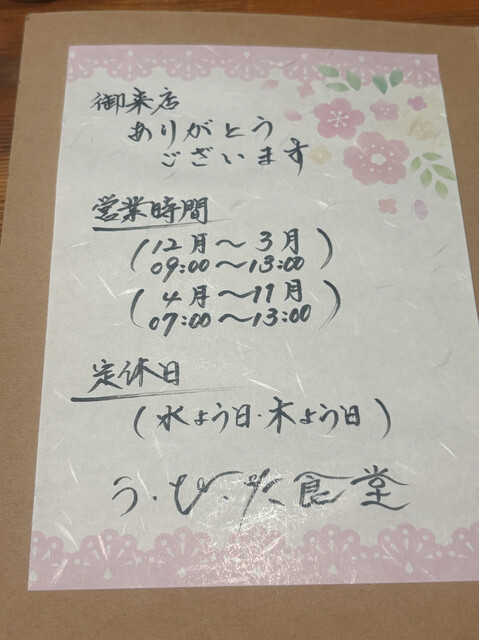 御来店
ありがとう
ございます
営業時間
(12月〜3月
09:00〜13:00)
(4月〜11月
07:00〜13:00)
定休日
(水よう日・木よう日)
う・び・た食堂